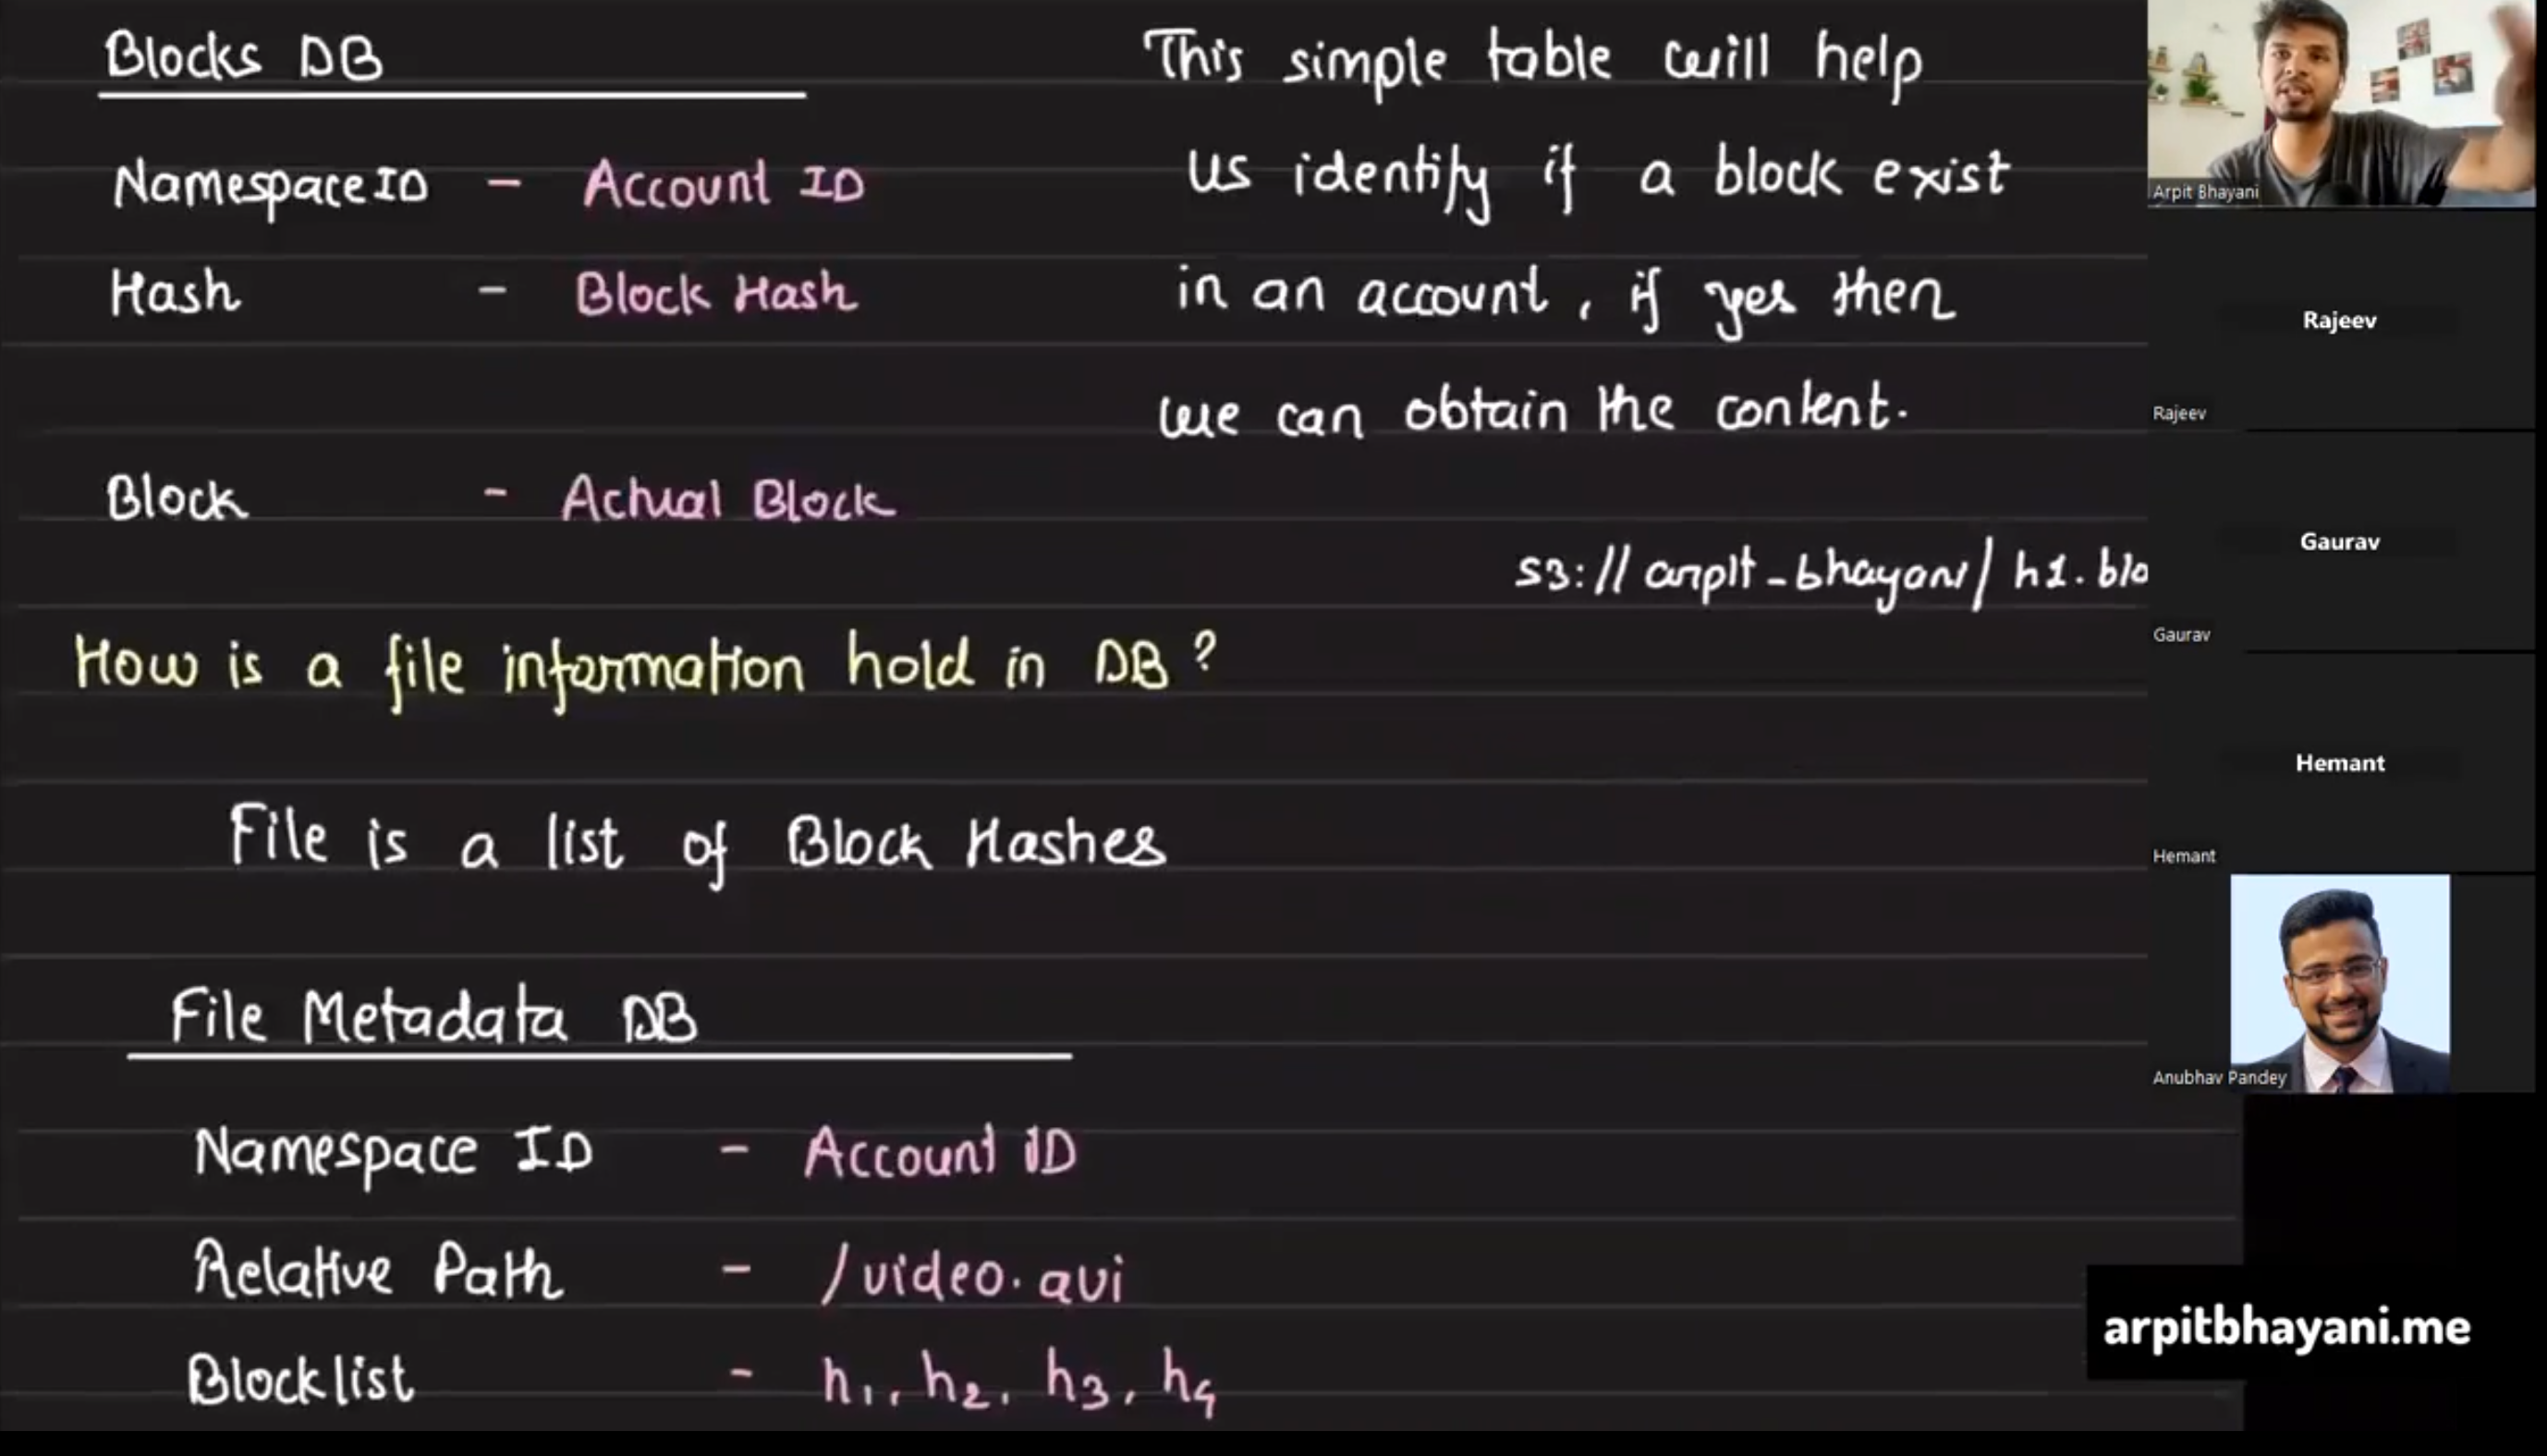 Blocks DB
Namespace ID - Account ID
Hash - Block Hash
Block - Actual Block
This simple table will help
us identify if a block exist
in an account, if yes then
we can obtain the content.
s3://arpit-bhayani/h1.blo
How is a file information hold in DB?
File is a list of Block Hashes
File Metadata DB
Namespace ID - Account ID
Relative Path - /video.avi
Blocklist - h1, h2, h3, h4
Arpit Bhayani
Rajeev
Rajeev
Gaurav
Gaurav
Hemant
Hemant
Anubhav Pandey
arpitbhayani.me